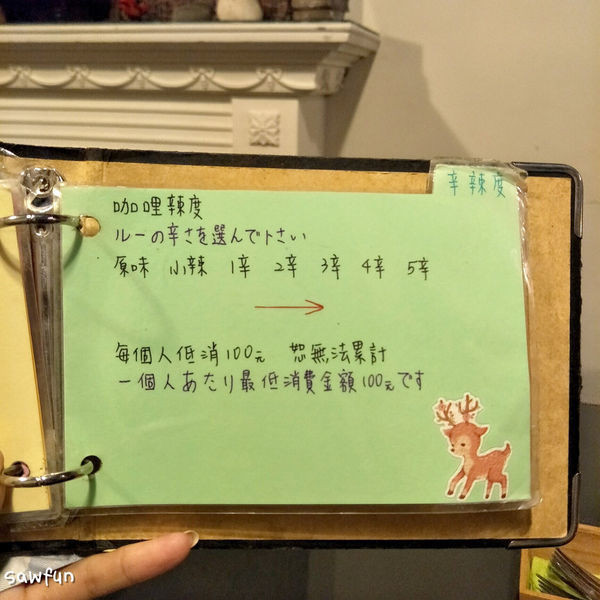 辛辣度
咖哩辣度
ルーの辛さを選んで下さい
原味 小辣 1辛 2辛 3辛 4辛 5辛
每個人低消100元 恕無法累計
一個人あたり最低消費金額100元です
sawfun